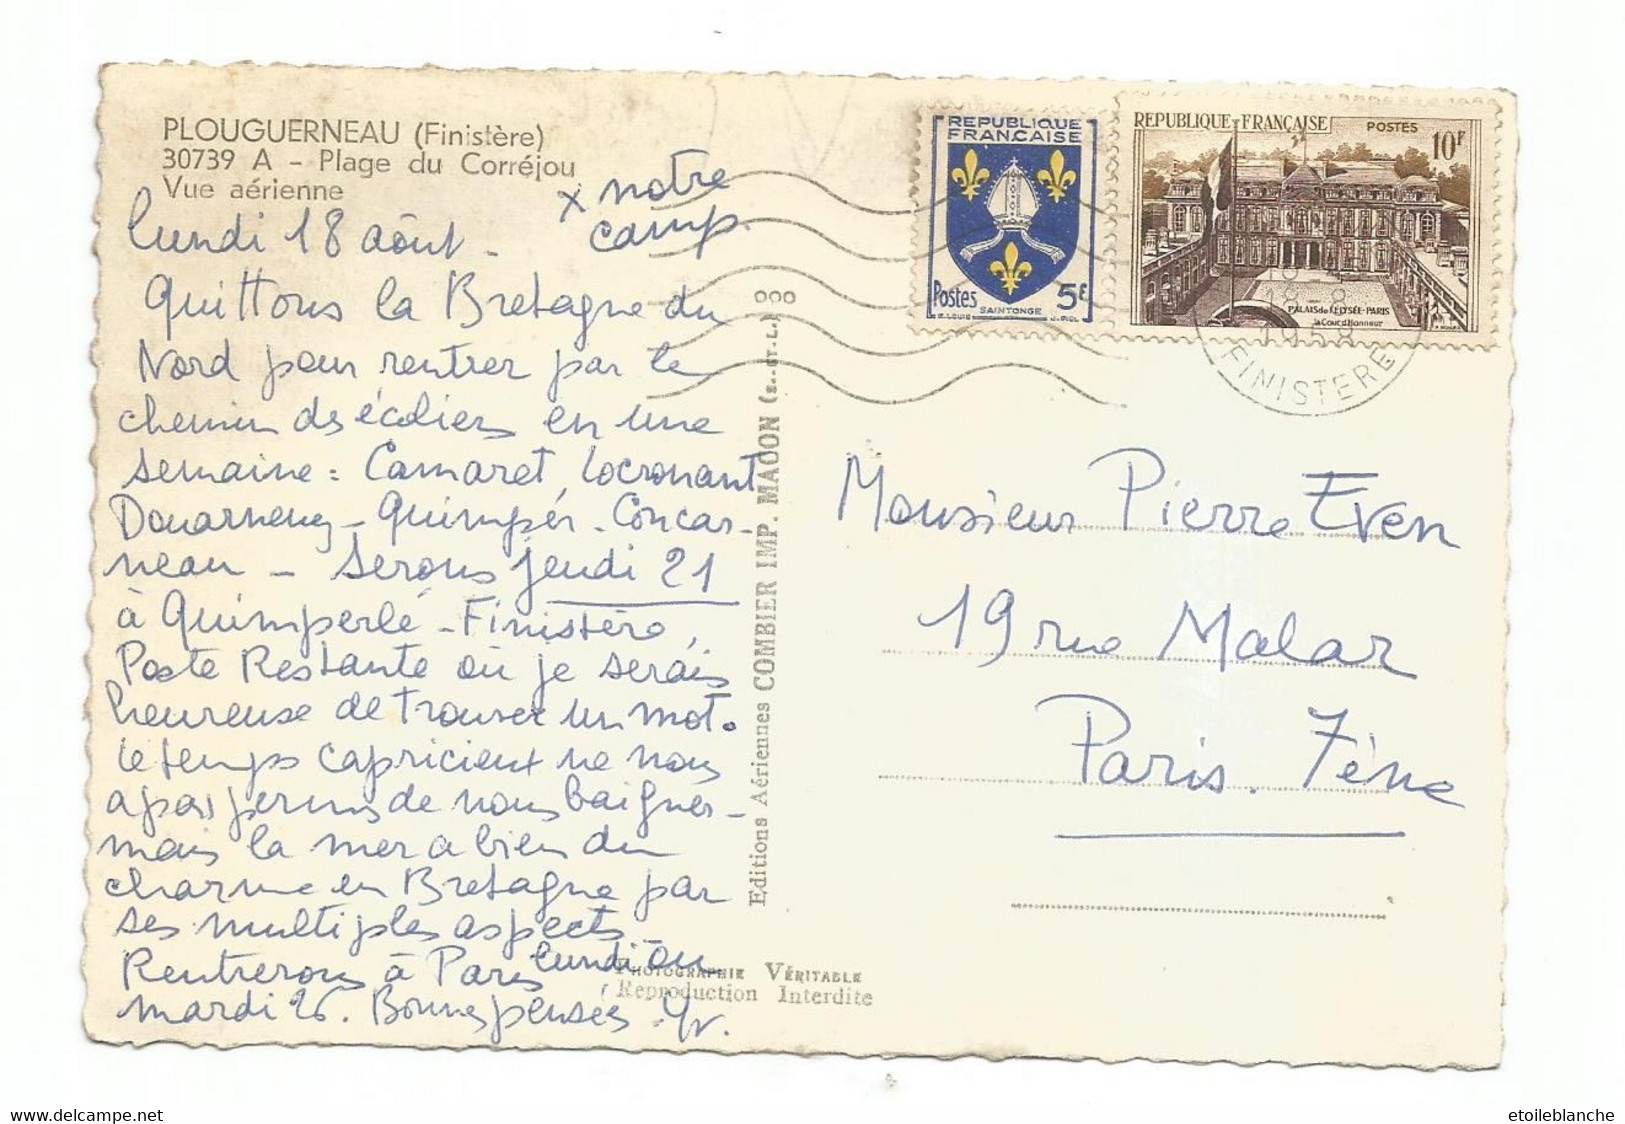 PLOUGUERNEAU (Finistère)
30739 A - Plage du Corréjou
Vue aérienne
x notre
camp.
lundi 18 août -
Quittons la Bretagne du
Nord pour rentrer par le
chemin des écoliers en une
semaine : Camaret, Locronant
Douarnenez - Quimpér - Concar-
neau - Serons jeudi 21
à Quimperlé - Finistère,
Poste Restante où je serais
heureuse de trouver un mot.
Le temps capricieux ne nous
a pas permis de nous baigner -
mais la mer a bien du
charme en Bretagne par
ses multiples aspects
Rentrerons à Paris lundi ou
mardi 26. Bonnes pensées. Yv.
Editions Aériennes COMBIER IMP. MACON (S.-ET-L.)
PHOTOGRAPHIE VÉRITABLE
Reproduction Interdite
REPUBLIQUE
FRANÇAISE
Postes 5F
SAINTONGE
REPUBLIQUE FRANÇAISE POSTES
10F
PALAIS de l'ELYSÉE-PARIS
la Cour d'Honneur
18-8
FINISTERE
Monsieur Pierre Even
19 rue Malar
Paris. 7ème
etoileblanche